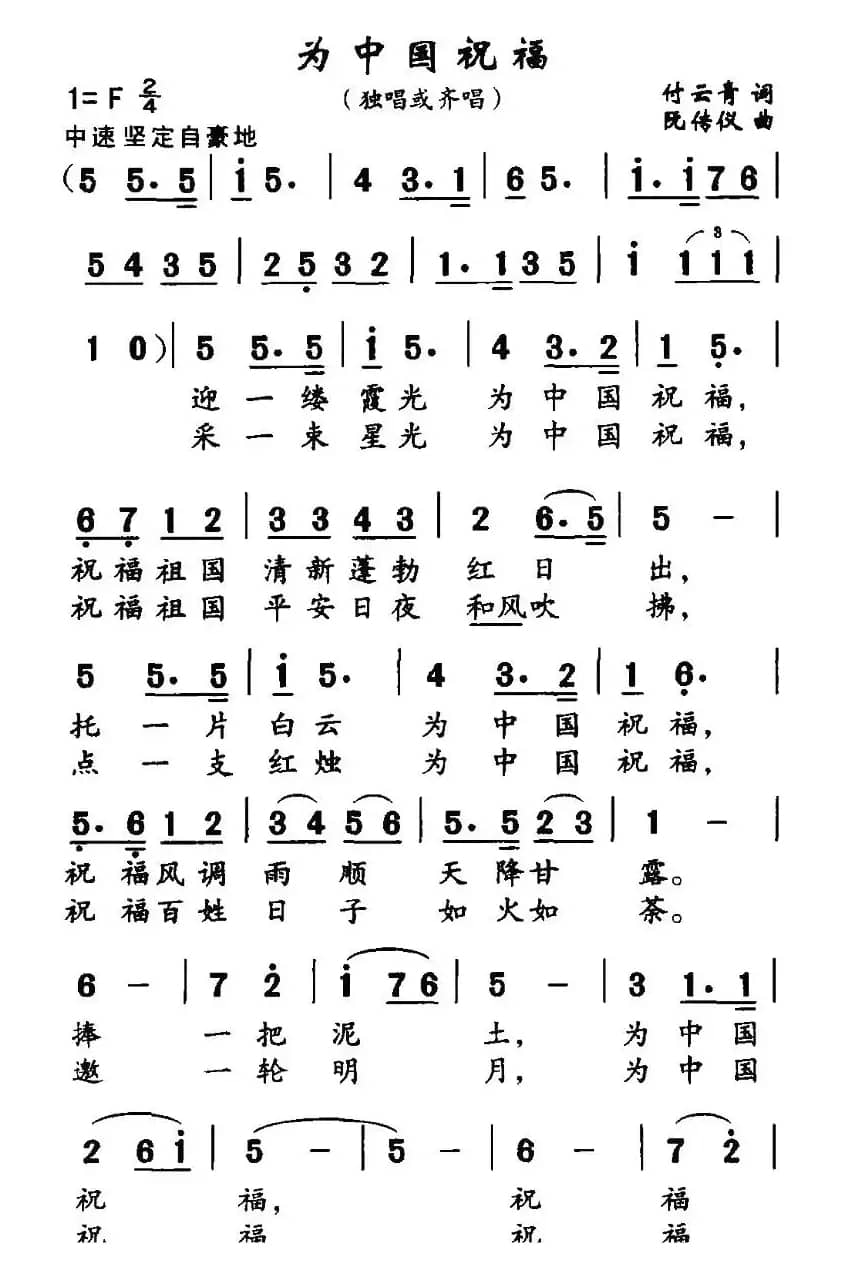 为中国祝福
1=F 2/4
（独唱或齐唱）
付云青 词
阮传仪 曲
中速 坚定自豪地
(5 5. 5 | i 5. | 4 3. 1 | 6 5. | i. i 7 6 |
5 4 3 5 | 2 5 3 2 | 1. 1 3 5 | i 3 1 1 1 |
1 0) | 5 5. 5 | i 5. | 4 3. 2 | 1 5. |
迎一缕霞光 为中国祝福，
采一束星光 为中国祝福，
6 7 1 2 | 3 3 4 3 | 2 6. 5 | 5 - |
祝福祖国清新蓬勃红日出，
祝福祖国平安日夜和风吹拂，
5 5. 5 | i 5. | 4 3. 2 | 1 6. |
托一片白云 为中国祝福，
点一支红烛 为中国祝福，
5. 6 1 2 | 3 4 5 6 | 5. 5 2 3 | 1 - |
祝福风调雨顺 天降甘露。
祝福百姓日子 如火如荼。
6 - | 7 2 | i 7 6 | 5 - | 3 1. 1 |
捧 一把泥土，为中国
邀 一轮明月，为中国
2 6 i | 5 - | 5 - | 6 - | 7 2 |
祝福，祝福
祝福 祝福